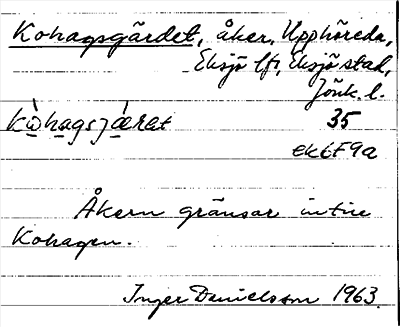 Kohagsgärdet, åker, Upphöreda,
Eksjö lfs, Eksjö stad,
Jönk. l.
kò̱hagsjæ̀ret 35
ek 6F9a
Åkern gränsar intill
Kohagen.
Inger Danielsson 1963.